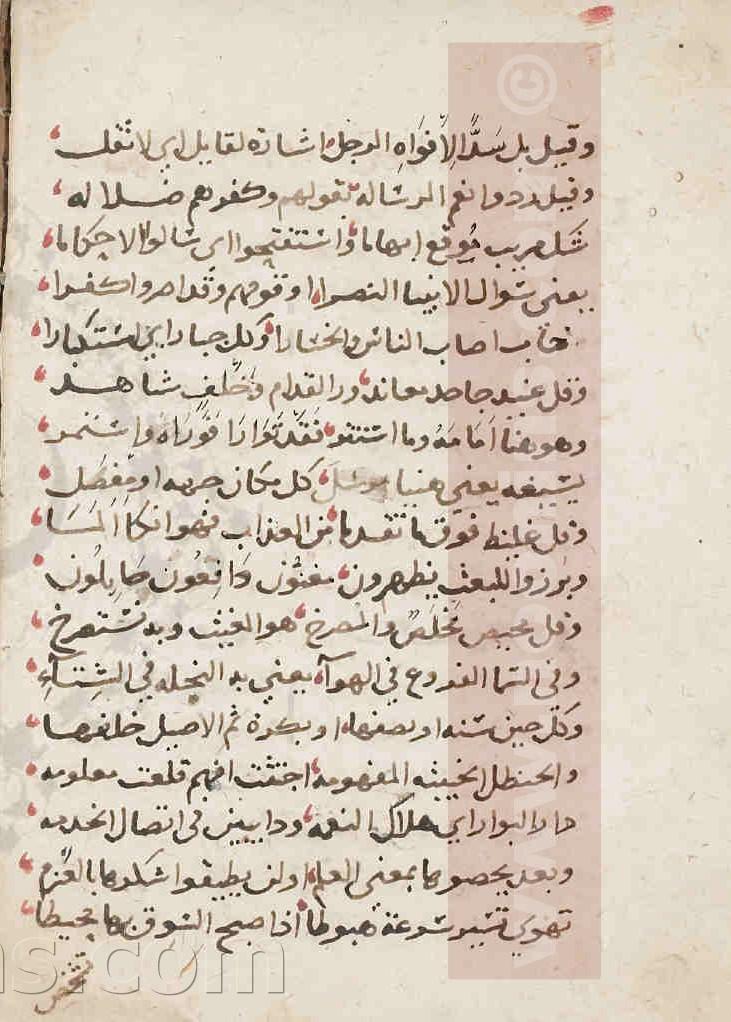 وقيل بل سَدًّا لِأَفوَاهِ الرجل اشارة لقايل اي لا تقل
وقيل ردوا نعم الرساله بقولهم وكفرهم ضلاله
شك مريب مُوقع ابهاما وَاستفتحوا اي سالوا الاحكاما
يعني سوال الانبيا النصرا او قومهم وقد اصروا كفرا
خاب اصاب الناس والخسارا وكل جبار اي استكبارا
وقل عنيد جاحد معاند ورا القدام وخلف شاهد
وهو هنا امامه وما فقد توارا فوراه واستمر
يسيغه يعني هنيا كل مكان جهه او مفصل
وقل غليظ فوق ما تقدما من العذاب فهو انكا المسا
وبرزوا للبعث يظهرون مغنون دافعون حايلون
وقل محيص مخلص والمصرخ هو المغيث وبه نستصرخ
وفي السما الفروع في الهوآء يعني به النخله في الشتآءِ
وكل حين سنه او نصفها او بكرة ثم الاصيل خلفها
والحنظل الخبيثه المفهومه اجتثت افهم قلعت معلومه
دار البوار اي هلاك النقمه ودايبين في اتصال الخدمه
وبعد يحصوها بمعنى العلم او لن يطيقوا شكرها بالعزم
تهوي تسير سرعة هبوطا اذا صبح الشوق بها محيطا
تشخص
ns.com
©
www